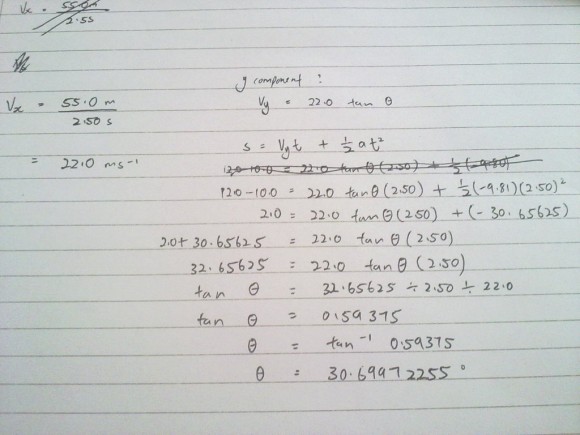 Vx = 55.0
2.5s
y component :
Vx = 55.0 m
2.50 s
Vy = 22.0 tan θ
= 22.0 ms⁻¹
s = Vyt + ½at²
12.0-10.0 = 22.0 tan θ (2.50) + ½(-9.80)
12.0-10.0 = 22.0 tanθ (2.50) + ½(-9.81)(2.50)²
2.0 = 22.0 tanθ (2.50) + (-30.65625)
2.0 + 30.65625 = 22.0 tanθ (2.50)
32.65625 = 22.0 tanθ (2.50)
tan θ = 32.65625 ÷ 2.50 ÷ 22.0
tan θ = 0.59375
θ = tan⁻¹ 0.59375
θ = 30.69972255°